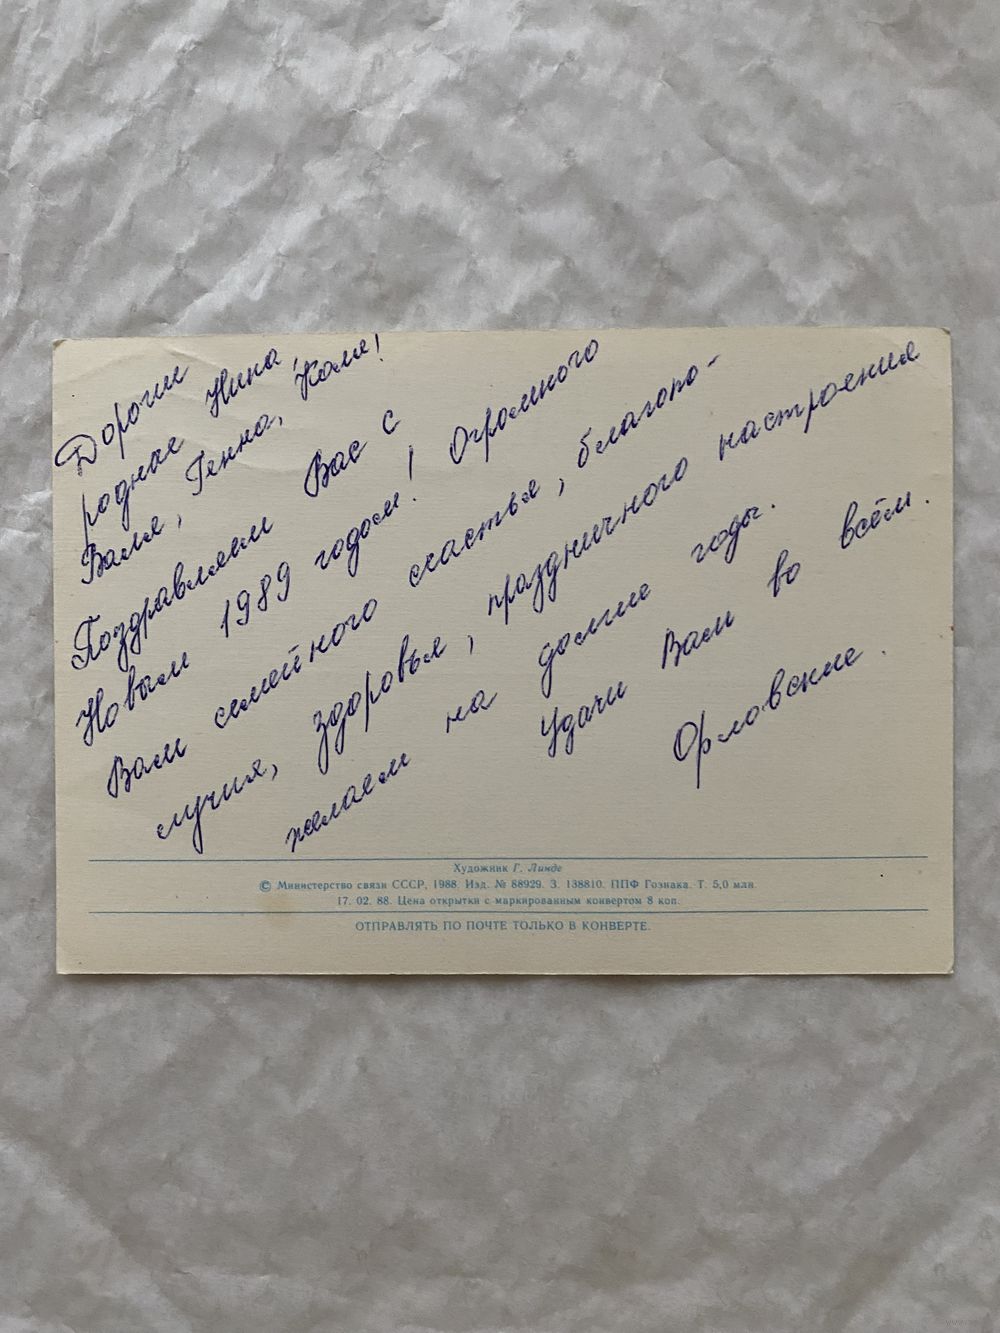 Дорогии
родные Нина,
Валя, Генна, Коля!
Поздравляем Вас с
Новым 1989 годом! Огромного
Вам семейного счастья, благопо-
лучия, здоровья, праздничного настроения
желаем на долгие годы.
Удачи Вам во всём.
Орловские.
Художник Г. Линде
© Министерство связи СССР, 1988. Изд. № 88929. З. 138810. ППФ Гознака. Т. 5,0 млн.
17. 02. 88. Цена открытки с маркированным конвертом 8 коп.
ОТПРАВЛЯТЬ ПО ПОЧТЕ ТОЛЬКО В КОНВЕРТЕ.